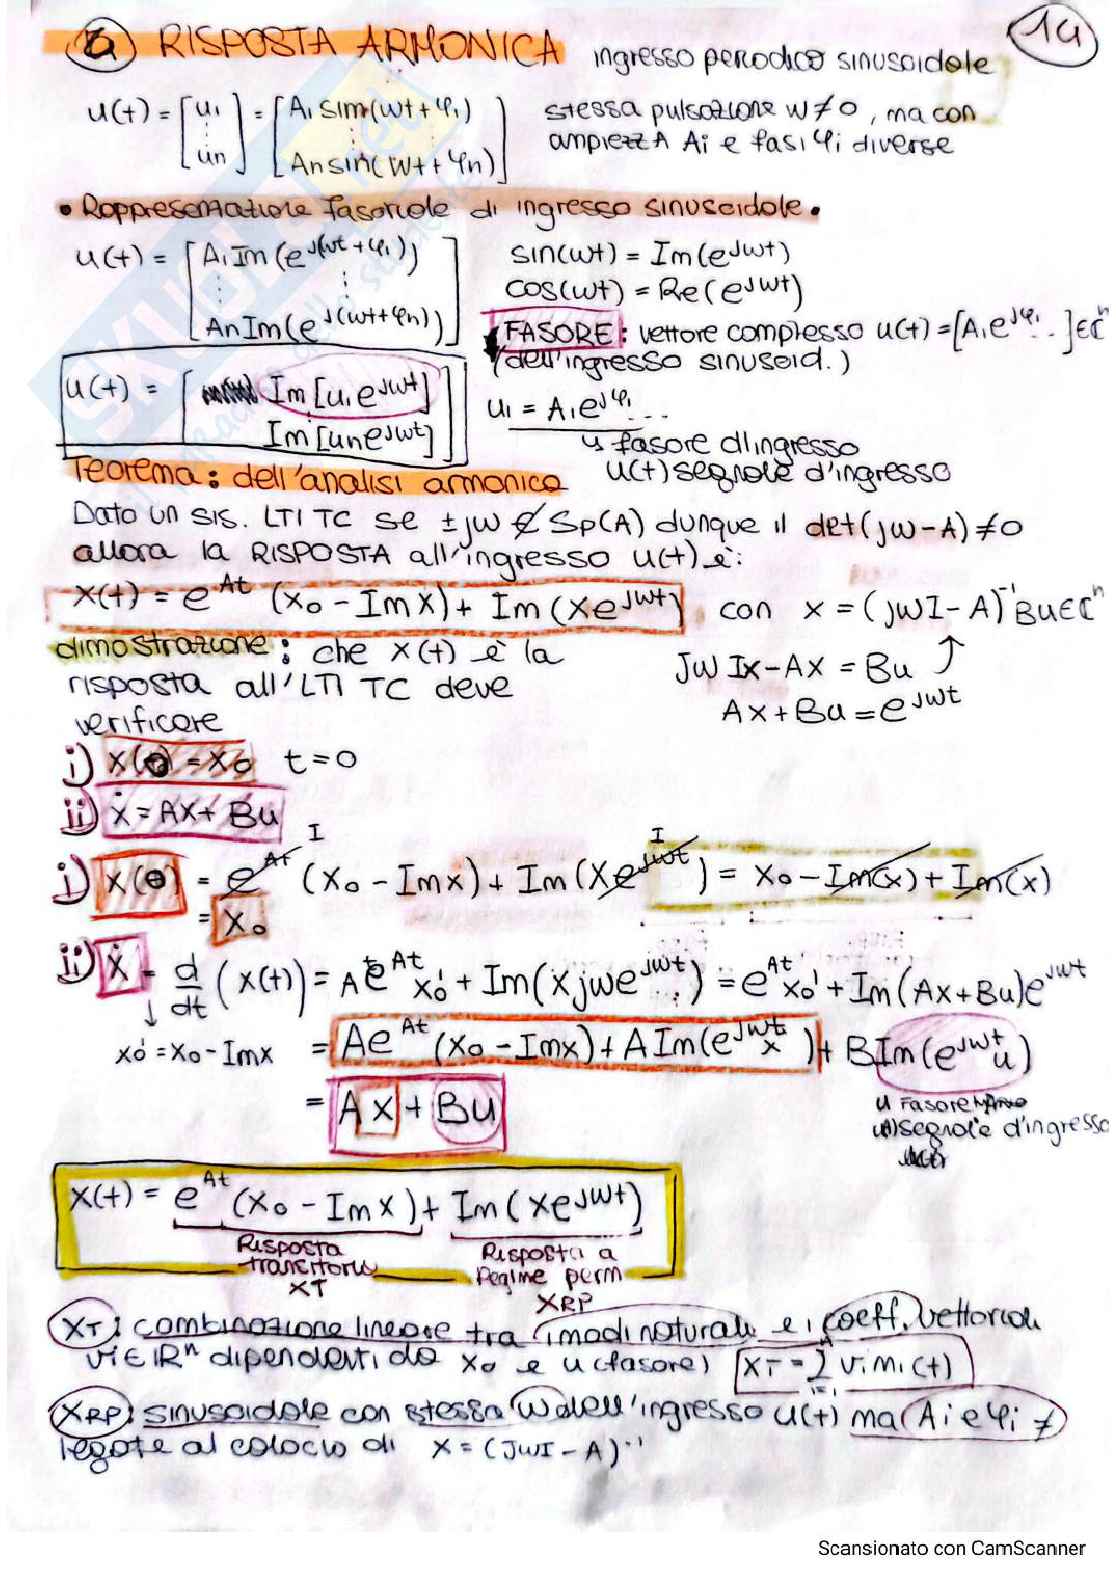 6 RISPOSTA ARMONICA ingresso periodico sinusoidale 14
u(t) = [u1 ⋮ un] = [A1 sim(wt + φ1) ⋮ An sin(wt + φn)] stessa pulsazione w ≠ 0, ma con
ampiezzA Ai e fasi φi diverse
• Rappresentazione fasoriale di ingresso sinusoidale.
u(t) = [A1 Im(e^j(wt + φ1)) ⋮ An Im(e^j(wt + φn))]
sin(wt) = Im(e^jwt)
cos(wt) = Re(e^jwt)
FASORE: vettore complesso u(t) = [A1 e^jφ1 ..] ∈ ℂ^n
(dell'ingresso sinusoid.)
u(t) = [Im[u1 e^jwt] Im[un e^jwt]]
u1 = A1 e^jφ1 ...
u fasore d'ingresso
u(t) segnale d'ingresso
Teorema: dell'analisi armonica
Dato un sis. LTI TC se ±jw ∉ Sp(A) dunque il det(jw - A) ≠ 0
allora la RISPOSTA all'ingresso u(t) è:
x(t) = e^At (x0 - Im x) + Im(x e^jwt) con x = (jwI - A)^-1 Bu ∈ ℂ^n
dimostrazione: che x(t) è la
risposta all'LTI TC deve
verificare
jw Ix - Ax = Bu ↑
Ax + Bu = e^jwt
i) x(0) = x0 t = 0
ii) ẋ = Ax + Bu
i) x(0) = e^At I (x0 - Im x) + Im(x e^jwt I) = x0 - Im(x) + Im(x)
= x0
ii) ẋ = d/dt (x(t)) = A e^At x0' + Im(x jw e^jwt) = e^At x0' + Im(Ax + Bu) e^jwt
↓
x0' = x0 - Im x = A e^At (x0 - Im x) + A Im(e^jwt x) + B Im(e^jwt u)
= A x + Bu
u Fasore
u(t) segnale d'ingresso
x(t) = e^At (x0 - Im x) + Im(x e^jwt)
Risposta transitoria XT
Risposta a Regime perm XRP
XT: combinazione lineare tra i modi naturali e i coeff. vettoriali
vi ∈ ℝ^n dipendenti da x0 e u (fasore) XT = Σ i=1 n vi mi(t)
XRP: sinusoidale con stessa w dell'ingresso u(t) ma Ai e φi ≠
legate al calcolo di x = (jwI - A)^-1
Scansionato con CamScanner